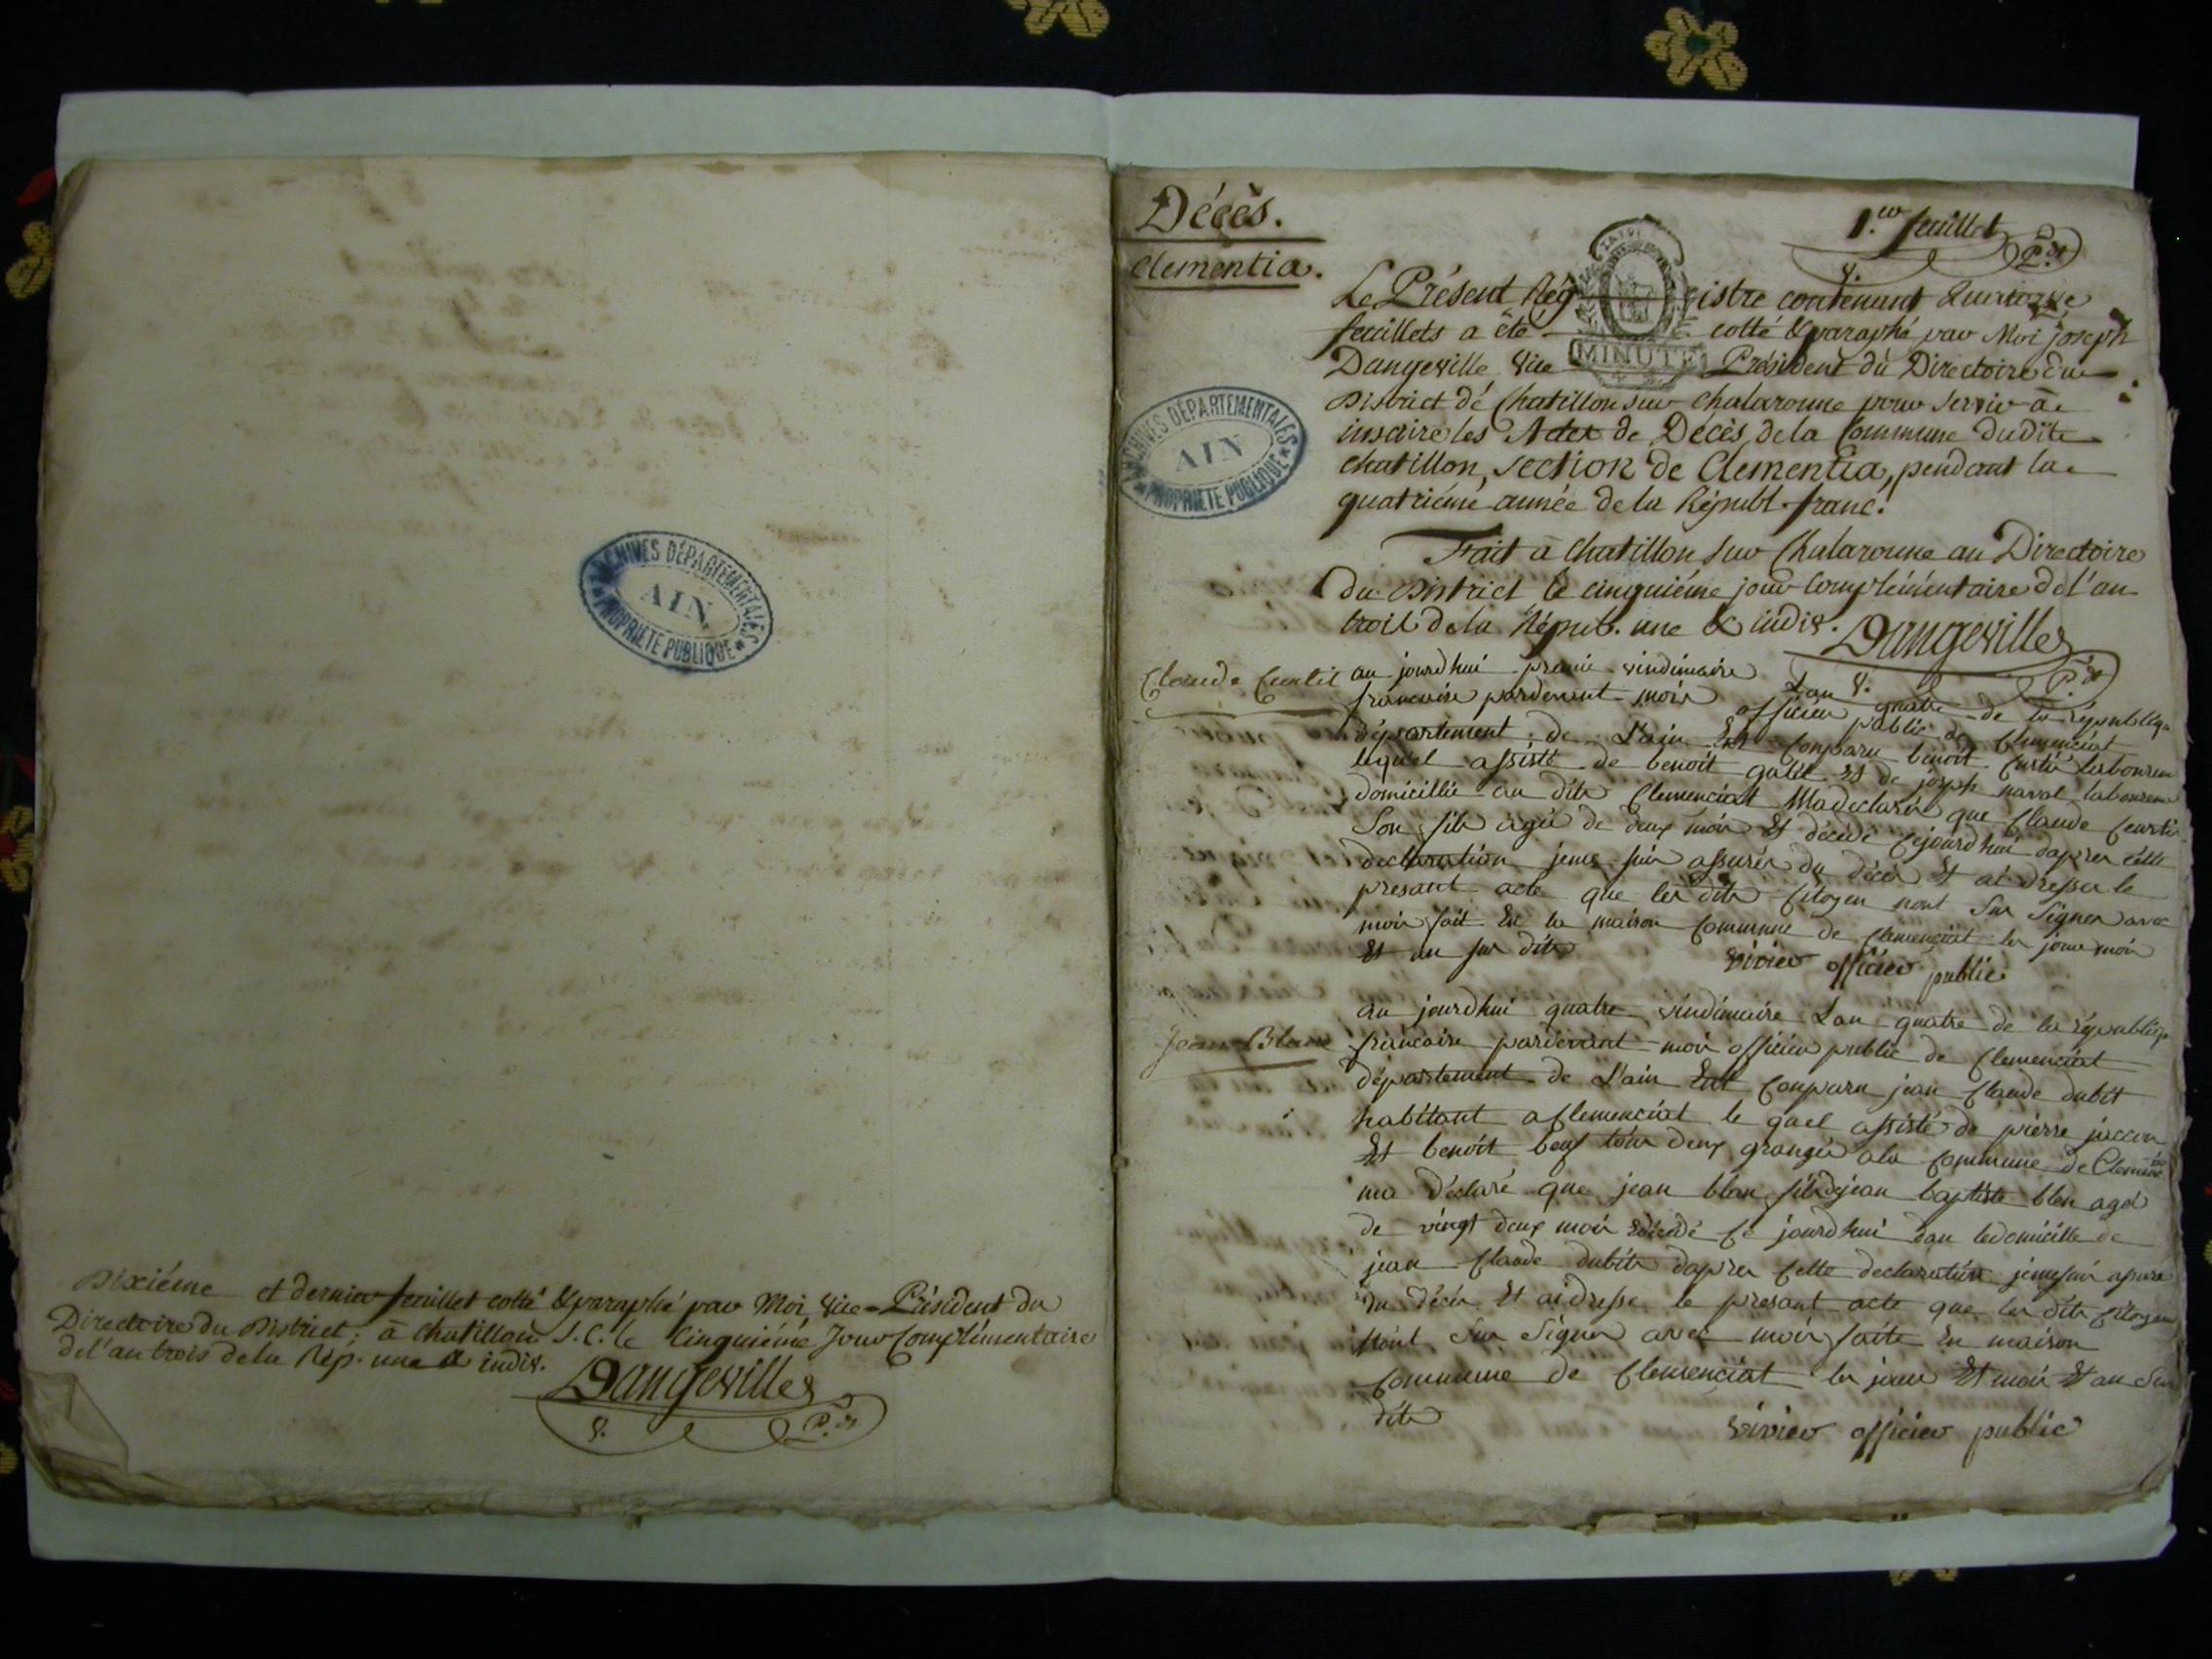 Dixiéme et dernier feuillet cotté & paraphé par Moi, Vice-Président du
Directoire du District; à Chatillon S. C. le Cinquiéme Jour Complémentaire
de l'an trois de la Rép. une & indiv.
Dangeville
V. P.dt
ARCHIVES DÉPARTEMENTALES
AIN
PROPRIETE PUBLIQUE
Décès.
Clementia.
1.er feuillet
V. P.dt
Le Présent Rég istre contenant
feuillets a été cotté & paraphé par Moi joseph
Dangeville Vice Président du Directoire du
MINUTE
District de Chatillon sur Chalaronne pour servir à
inscrire les Actes de Décès de la Commune dudit
Chatillon, section de Clementia, pendant la
quatriéme année de la Républ. franc.
ARCHIVES DÉPARTEMENTALES
AIN
PROPRIETE PUBLIQUE
Fait à Chatillon sur Chalaronne au Directoire
du District le cinquiéme jour Complémentaire de l'an
trois de la Répub. une & indiv. Dangeville
V. P.dt
Claude Curtil
au jourdhui premie vindimaire Lan quatre de la républiq
francaise pardevant moi officier public de Clemenciat
département de L'ain Est Conparu benoit Curti laboureu
lequel assisté de benoit galet Et de joseph naval laboureur
domicillie au dite Clemenciat Ma declaré que Claude Ceurti
Son fils agé de deux mois Et décedé cejourdhui dapres cette
declaration jeme suis assurés du déces Et ai dresser le
presant acte que les dits Citoyen nont Su Signer avec
moi fait En la maison Commune de Clemenciat les jour moi
Et an sus dits
vivier officier public
Jean Blanc
au jourdhui quatre vindimaire Lan quatre de la républiq
francaise pardevant moi officier public de Clemenciat
département de L'ain Est Conparu jean Claude dubit
habitant a Clemenciat le quel assisté de pierre
Et benoit beuf tous deux granger ala Commune de
ma déclaré que jean blan fils de jean baptiste blan agé
de vingt deux mois décédé Ce jourdhui dan le domicille de
jean Claude dubit dapres Cette declaration jeme suis assuré
du déces Et ai dresse le presant acte que les dits Citoyen
nont Su Signer avec moi faite En maison
Commune de Clemenciat les jour Et moi Et an Sus
dits
vivier officier public